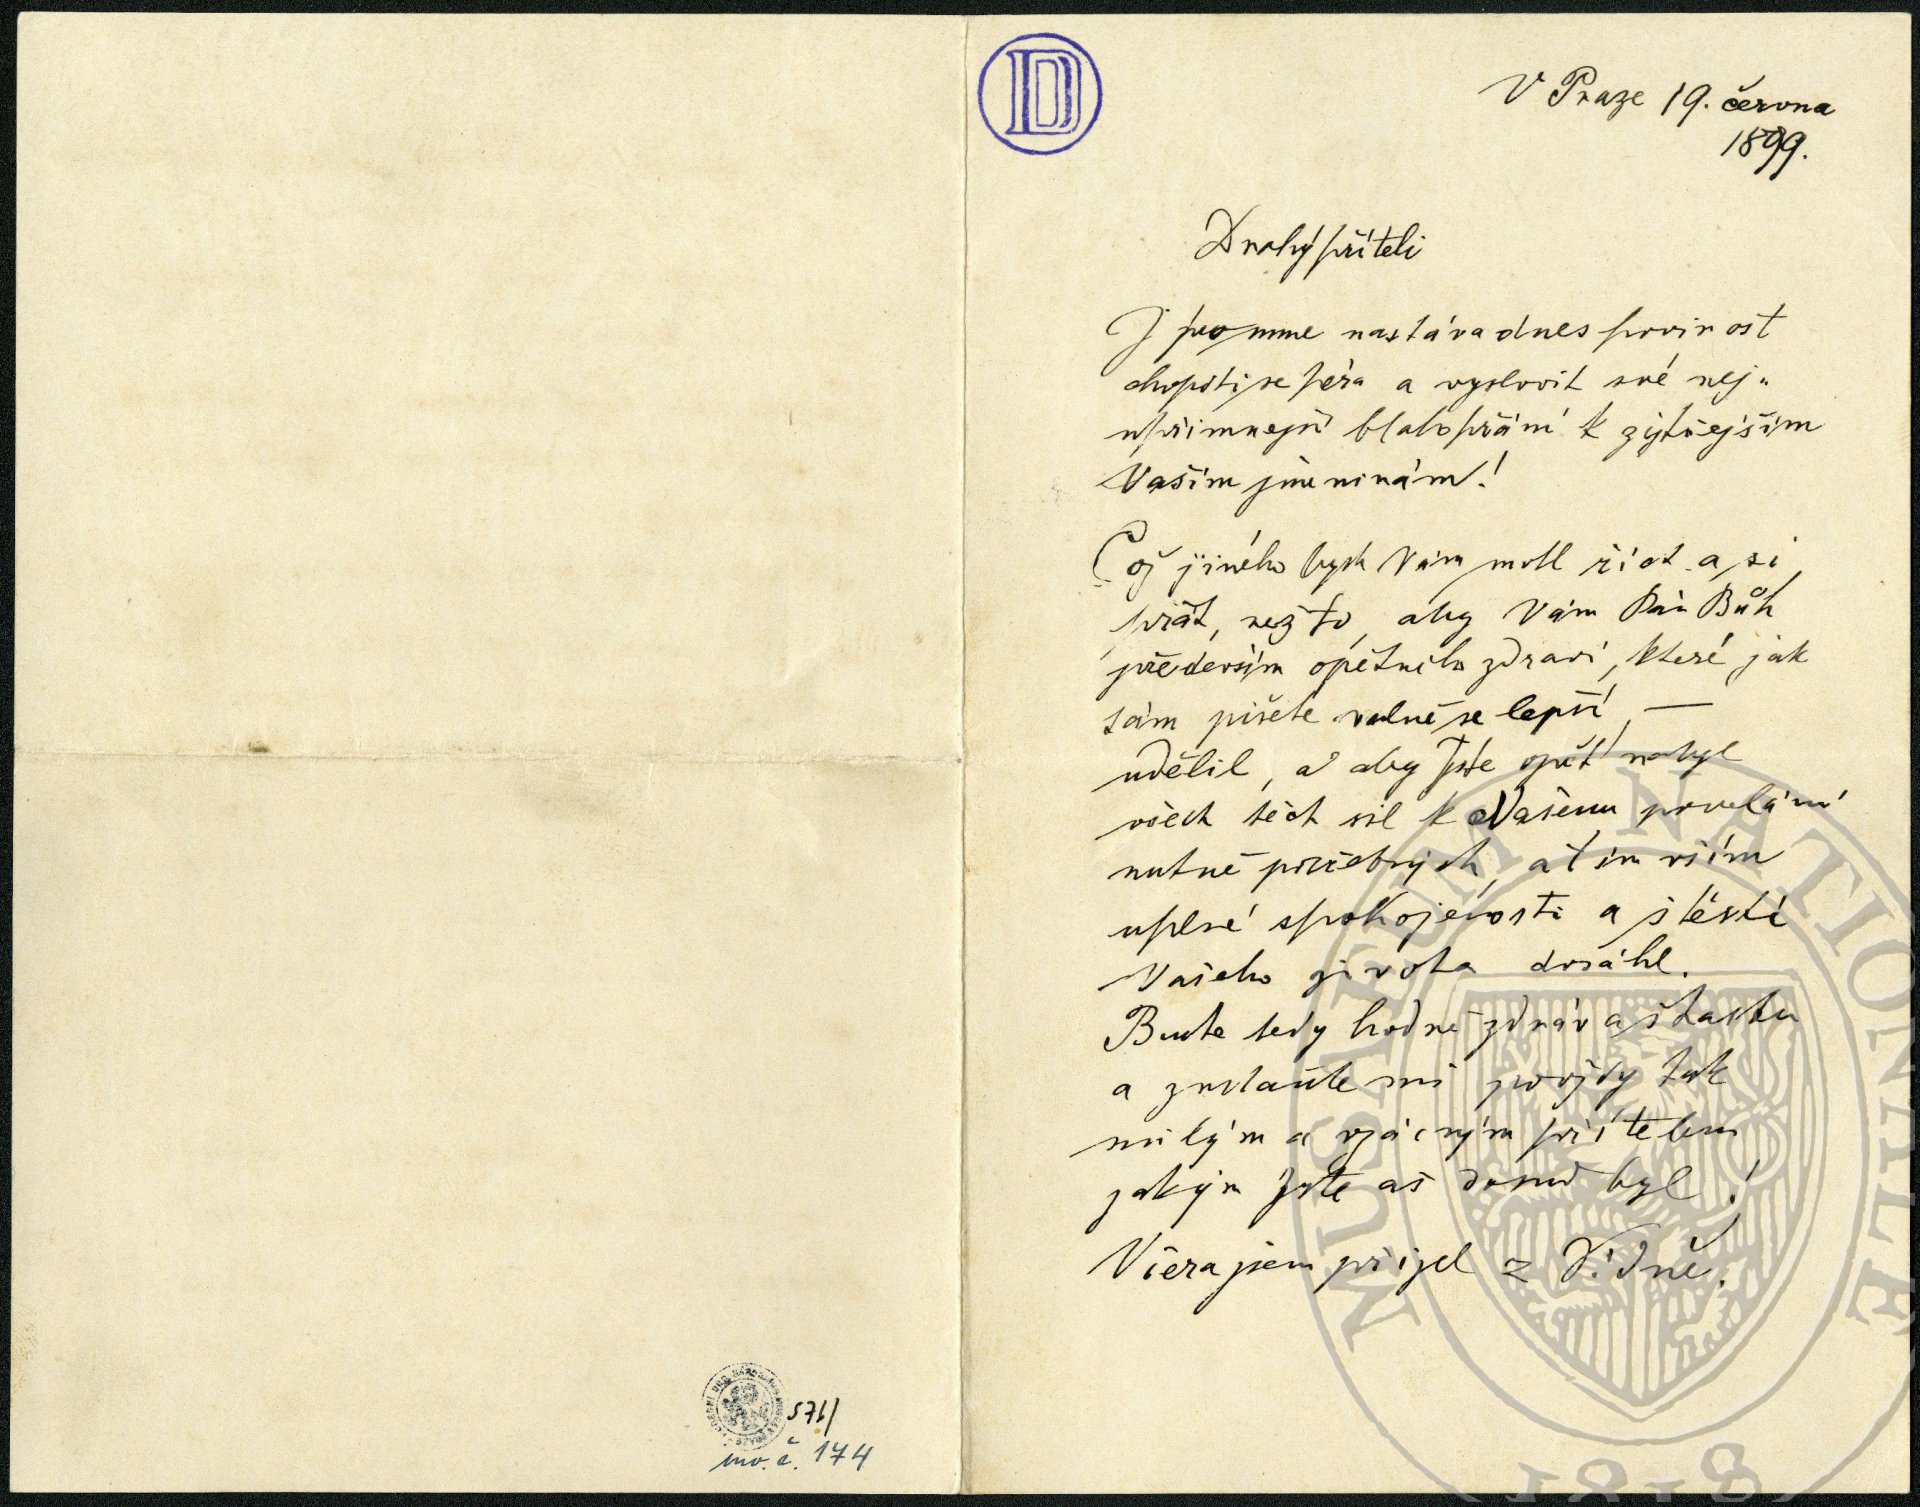 D
V Praze 19. června
1899.
Drahý příteli
I pro mne nastává dnes povinost
chopiti se péra a vyslovit své nej-
upřímnejší blahopřání k zýtřejším
Vašim jmeninám!
Což jiného bych Vám mohl říct a si
přát, než to, aby Vám Pán Bůh
předevsím opětného zdraví, které jak
sám píšete valně se lepší, —
udělil, a aby Jste opět nabyl
všech těch sil k Vašemu povolání
nutně potřebných, a tím vším
uplné spokojenosti a štěstí
Vašeho života dosáhl.
Buďte tedy hodně zdráv a šťasten
a zustaňte mi povždy tak
milým a vzácným přítelem
jakým Jste aš dosud byl!
Včera jsem přijel z Vídně.
571/
inv. č. 174
MUSAEUM NATIONALE
1818